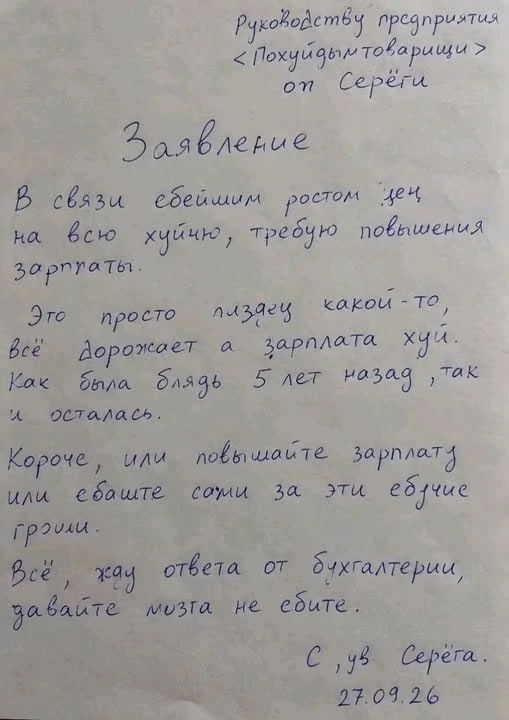 Руководству предприятия
<Похуйдымтоварищи>
оп Серёги
Заявление
В связи ебейшим ростом цен
на всю хуйню, требую повышения
зарплаты.
Это просто пиздец какой-то,
всё дорожает а зарплата хуй.
Как была блядь 5 лет назад, так
и осталась.
Короче, или повышайте зарплату
или ебаште сами за эти ебучие
грэши.
Всё, жду ответа от бухгалтерии,
давайте мозга не ебите.
С, ув Серёга.
27.09.26